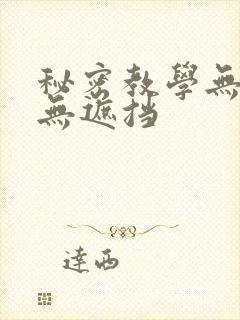 秘密教學無
無遮挡
達西